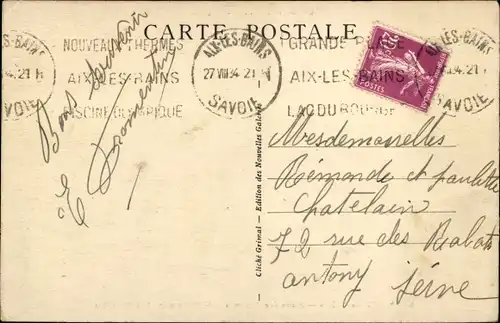 CARTE POSTALE
AIX-LES-BAINS
27 VIII 34. 21 H
SAVOIE
NOUVEAUX THERMES
AIX-LES-BAINS
PISCINE OLYMPIQUE
GRANDE PLAGE
AIX-LES-BAINS
LAC DU BOURGET
AIX-LES-BAINS
SAVOIE
20c
POSTES
Bons souvenir
E
Cliché Grimal — Edition des Nouvelles Galeries
Mesdemoiselles
Rémonde et paulette
Chatelain
72 rue des Rabats
antony Seine